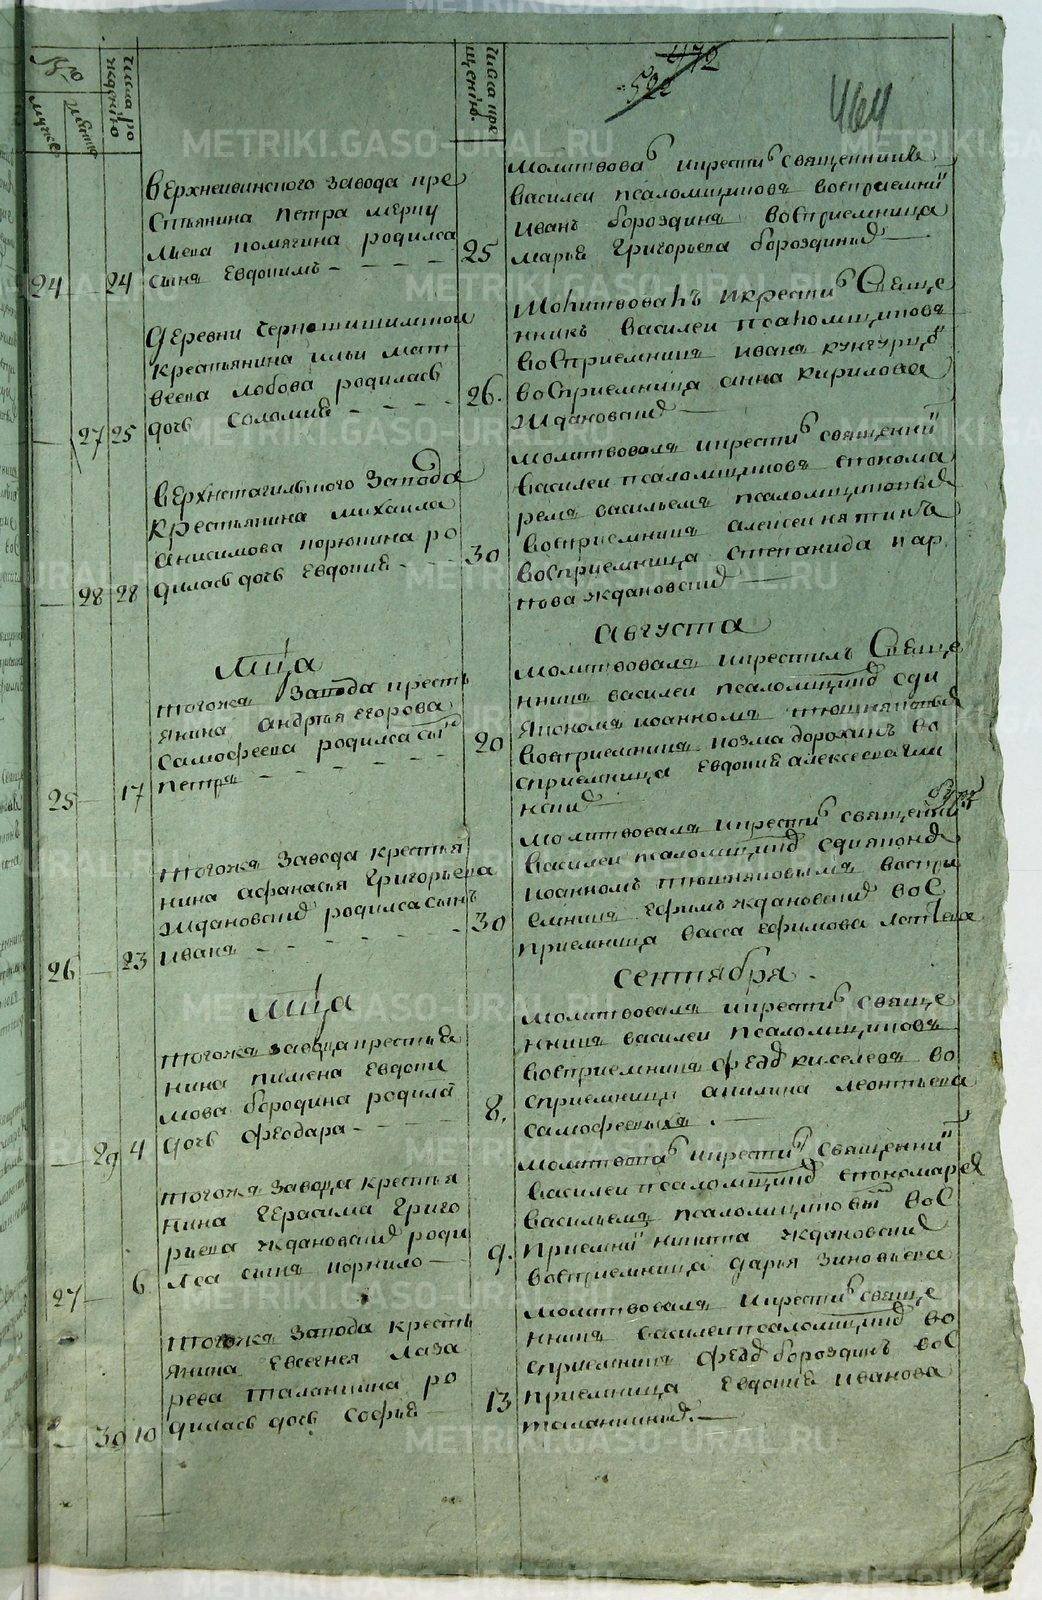 №
мужеска
женска
числа ро
ждению
числа кре
щению.
472
502
464
24
24
верхнеивинского завода кре
стьянина петра мерку
льева помягина родился
сынъ Евдокимъ
25
молитвовал и крестил священникъ
василеи псаломщиковъ восприемникъ
иванъ бороздинъ восприемница
марья григорьева бороздиных
27
25
деревни чер
крестьянина ильи мат
веева лобова родилась
дочь соломия
26.
Молитвовалъ и крестил Свяще
нникъ василеи псаломщиковъ
восприемникъ иванъ кунгурцо
восприемница анна кирилова
ждановских
28
28
верхнетагильского завода
крестьянина михаила
анисимова порюшина ро
дилась дочь Евдокия
30
молитвовалъ и крестил священни
василеи псаломщиковъ спонома
ремъ васильемъ псаломщиковым
восприемникъ алексеи
восприемница степанида пар
нова ждановских
Августа
Мца
25
17
тогожъ завода кресть
янина андрея егорова
самофеева родился сы
петръ
20
молитвовалъ и крестилъ Свяще
нникъ василеи псаломщик сди
якономъ иоанномъ тюшняковым
восприемникъ козма дорохинъ во
сприемница евдокия алексеева
26
23
тогожъ завода крестья
нина афанасья григорьева
ждановских родился сынъ
иванъ
30
молитвовалъ и крестил священни
василеи псаломщик сдияконом
иоанномъ тюшняковымъ воспри
емникъ ефимъ ждановских вос
приемница васса ефимова
сентября
Мца
29
4
тогожъ завода крестья
нина пимена евдоки
мова бородина родила
дочь феодора
8.
молитвовалъ и крестил свяще
нникъ василеи псаломщиковъ
восприемникъ фед киселевъ во
сприемница акилина леонтьева
самофеевых
27
6
тогожъ завода крестья
нина герасима григо
рьева ждановских роди
лса сынъ корнило
9.
молитвовал и крестил священни
василеи псаломщик спономарем
васильемъ псаломщиковым вос
приемни никита ждановских
восприемница дарья зиновьева
30
10
тогожъ завода кресть
янина евсегнея лаза
рева таланкина ро
дилась дочь софья
13
молитвовалъ и крестил свяще
нникъ василеи псаломщик во
сприемникъ фед бороздинъ вос
приемница евдокия иванова
таланкиных.
METRIKI.GASO-URAL.RU